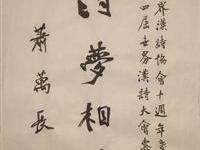 界漢詩協會十週年慶
四屆世界漢詩大會慶
夢相
蕭萬長